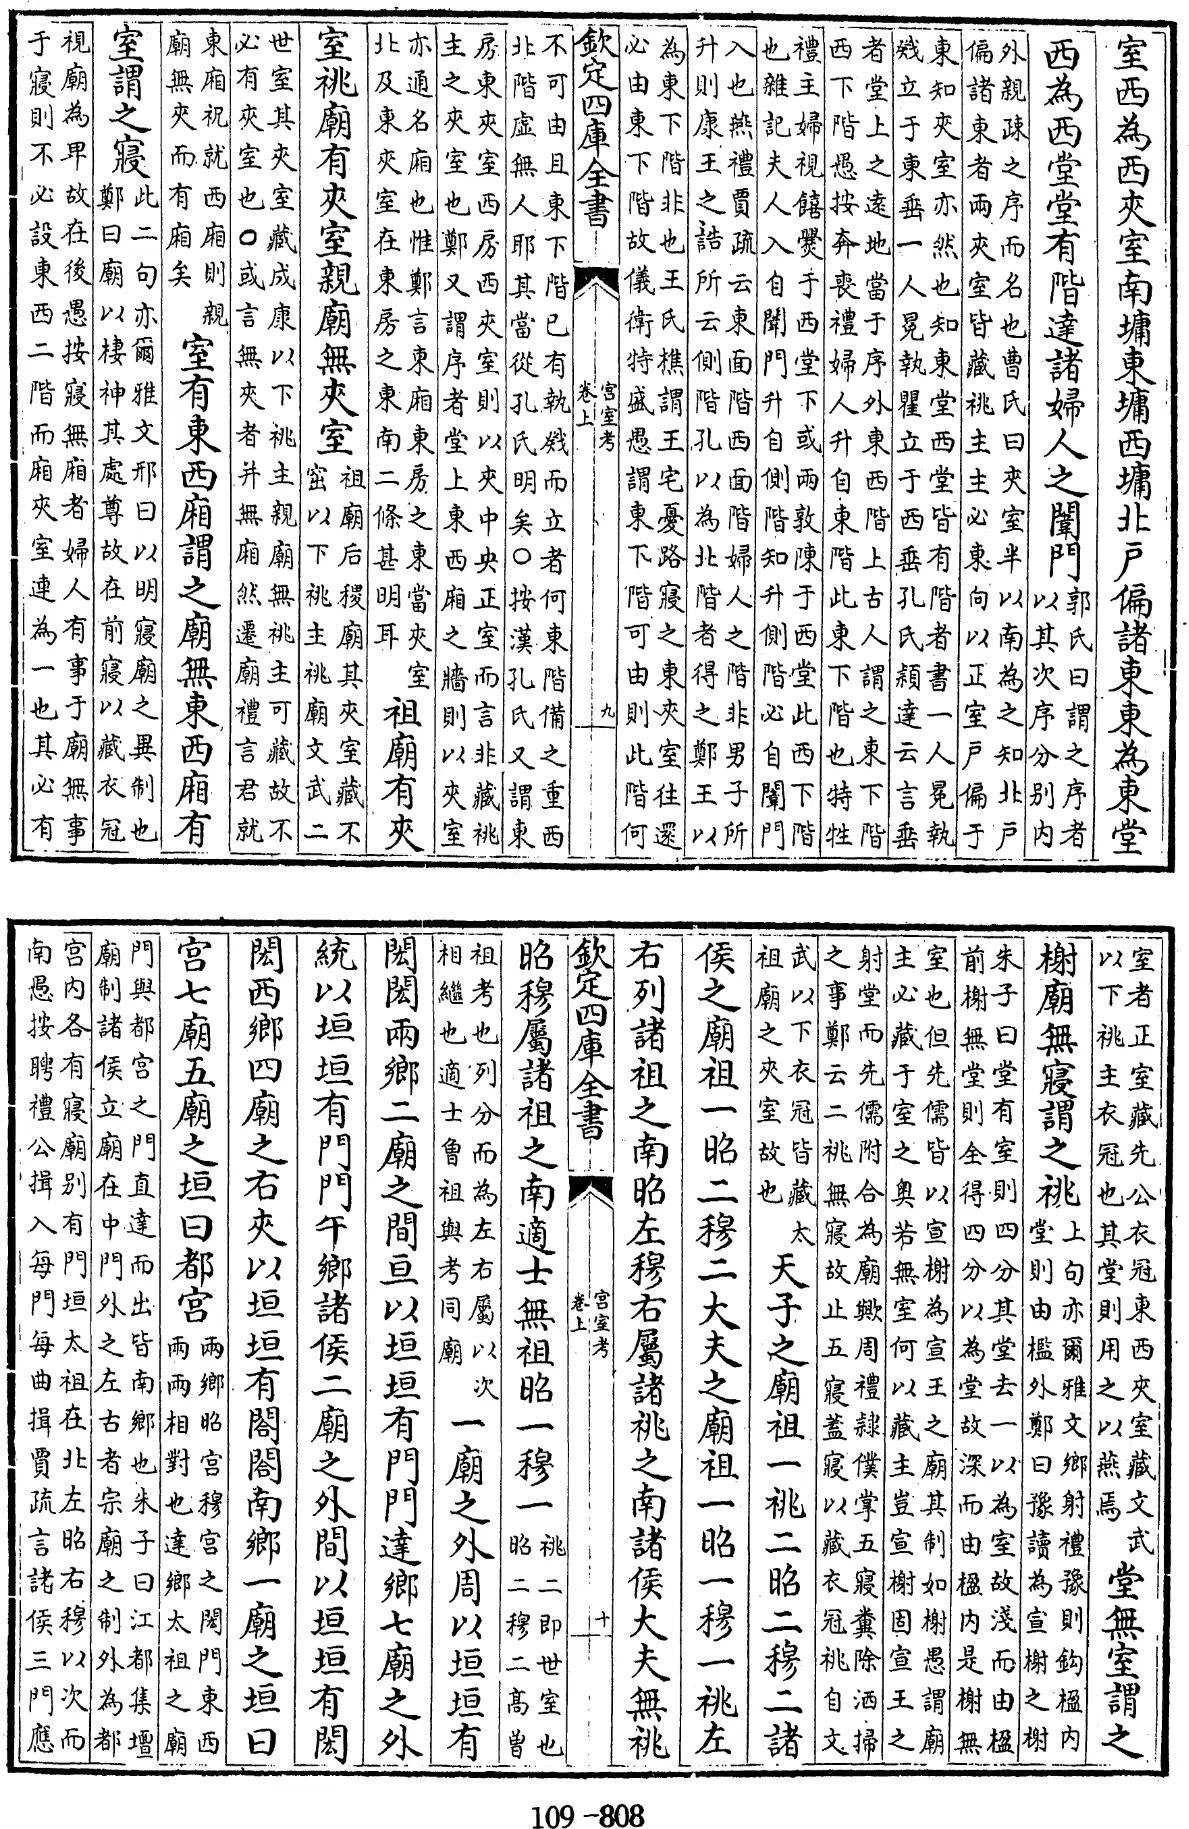 室西為西夾室南墉東墉西墉北戶偏諸東東為東堂
西為西堂堂有階達諸婦人之闈門
郭氏曰謂之序者
以其次序分别内
外親疎之序而名也曹氏曰夾室半以南為之知北戶
偏諸東者兩夾室皆藏祧主主必東向以正室戶偏于
東知夾室亦然也知東堂西堂皆有階者書一人冕執
戣立于東垂一人冕執瞿立于西垂孔氏穎達云言垂
者堂上之遠地當于序外東西階上古人謂之東下階
西下階愚按奔喪禮婦人升自東階此東下階也特牲
禮主婦視饎爨于西堂下或兩敦陳于西堂此西下階
也雜記夫人入自闈門升自側階知升側階必自闈門
入也燕禮賈疏云東面階西面階婦人之階非男子所
升則康王之誥所云側階孔以為北階者得之鄭王以
為東下階非也王氏樵謂王宅憂路寢之東夾室往還
必由東下階故儀衛特盛愚謂東下階可由則此階何
欽定四庫全書
宮室考
卷上
九
不可由且東下階已有執戣而立者何東階備之重西
北階虛無人耶其當從孔氏明矣○按漢孔氏又謂東
房東夾室西房西夾室則以夾中央正室而言非藏祧
主之夾室也鄭又謂序者堂上東西廂之牆則以夾室
亦通名廂也惟鄭言東廂東房之東當夾室
北及東夾室在東房之東南二條甚明耳
祖廟有夾
室祧廟有夾室親廟無夾室
祖廟后稷廟其夾室藏不
窋以下祧主祧廟文武二
世室其夾室藏成康以下祧主親廟無祧主可藏故不
必有夾室也○或言無夾者并無廂然遷廟禮言君就
東廂祝就西廂則親
廟無夾而有廂矣
室有東西廂謂之廟無東西廂有
室謂之寢
此二句亦爾雅文邢曰以明寢廟之異制也
鄭曰廟以棲神其處尊故在前寢以藏衣冠
視廟為卑故在後愚按寢無廂者婦人有事于廟無事
于寢則不必設東西二階而廂夾室連為一也其必有
室者正室藏先公衣冠東西夾室藏文武
以下祧主衣冠也其堂則用之以燕焉
堂無室謂之
榭廟無寢謂之祧
上句亦爾雅文鄉射禮豫則鈎楹内
堂則由楹外鄭曰豫讀為宣榭之榭
朱子曰堂有室則四分其堂去一以為室故淺而由楹
前榭無堂則全得四分以為堂故深而由楹内是榭無
室也但先儒皆以宣榭為宣王之廟其制如榭愚謂廟
主必藏于室之奥若無室何以藏主豈宣榭固宣王之
射堂而先儒附合為廟歟周禮隷僕掌五寢糞除洒掃
之事鄭云二祧無寢故止五寢蓋寢以藏衣冠祧自文
武以下衣冠皆藏太
祖廟之夾室故也
天子之廟祖一祧二昭二穆二諸
侯之廟祖一昭二穆二大夫之廟祖一昭一穆一祧左
右列諸祖之南昭左穆右屬諸祧之南諸侯大夫無祧
欽定四庫全書
宮室考
卷上
十
昭穆屬諸祖之南適士無祖昭一穆一
祧二即世室也
昭二穆二高曾
祖考也列分而為左右屬以次
相繼也適士魯祖與考同廟
一廟之外周以垣垣有
閎閎兩鄉二廟之間亘以垣垣有門門達鄉七廟之外
統以垣垣有門門午鄉諸侯二廟之外間以垣垣有閎
閎西鄉四廟之右夾以垣垣有閤閤南鄉一廟之垣曰
宮七廟五廟之垣曰都宮
兩鄉昭宮穆宮之閎門東西
兩兩相對也達鄉太祖之廟
門與都宮之門直達而出皆南鄉也朱子曰江都集壇
廟制諸侯立廟在中門外之左古者宗廟之制外為都
宮内各有寢廟别有門垣太祖在北左昭右穆以次而
南愚按聘禮公揖入每門每曲揖賈疏言諸侯三門應
109-808